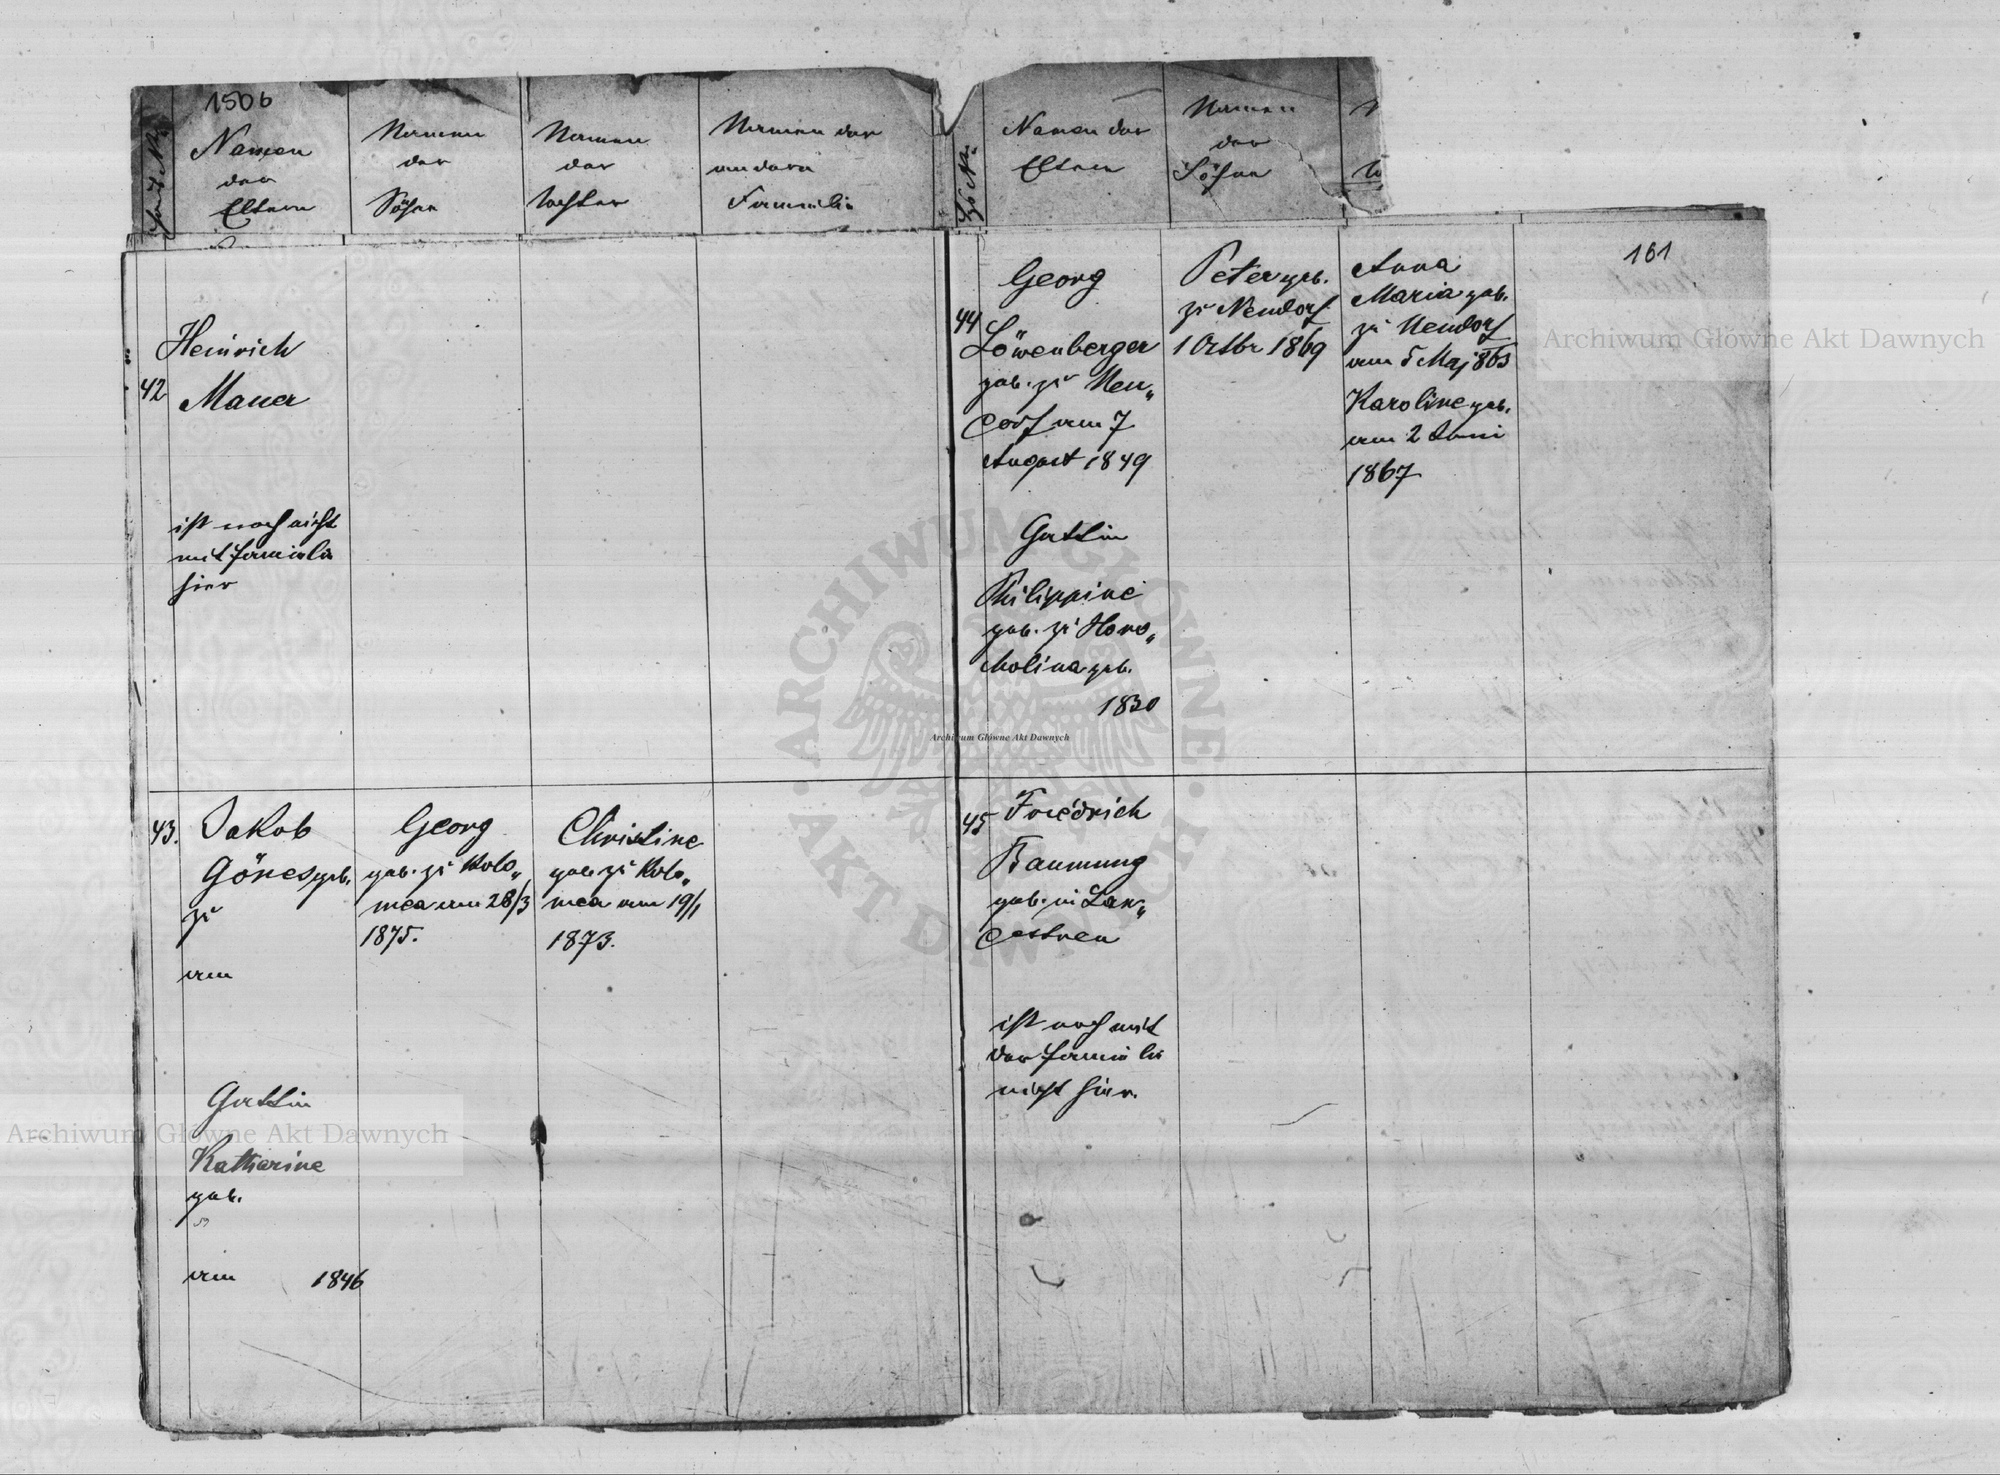 150b
Namen
der
Eltern
Namen
der
Söhne
Namen
der
Töchter
Namen der
andern
Familie
Namen der
Eltern
Namen
der
Söhne
161
42
Heinrich
Mauer
ist noch nicht
mit familie
hier
43.
Jakob
Gönes geb.
zu
am
Gattin
Katharine
geb.
am 1846
Georg
geb. zu Kolo„
mea am 28/3
1875.
Christine
geb. zu Kolo„
mea am 19/1
1873.
44
Georg
Löwenberger
geb. zu Neu„
dorf am 7
August 1849
Gattin
Philippine
geb. zu Horo„
cholina geb.
1830
Peter geb.
zu Neudorf
1 Octbr 1869
Anna
Maria geb.
zu Neudorf
am 5 Maj 1863
Karoline geb.
am 2 Juni
1867
45
Friedrich
Baumung
geb. in Lan„
destreu
ist noch mit
der familie
nicht hier.
Archiwum Główne Akt Dawnych
Archiwum Główne Akt Dawnych
Archiwum Główne Akt Dawnych
ARCHIWUM GŁÓWNE AKT DAWNYCH